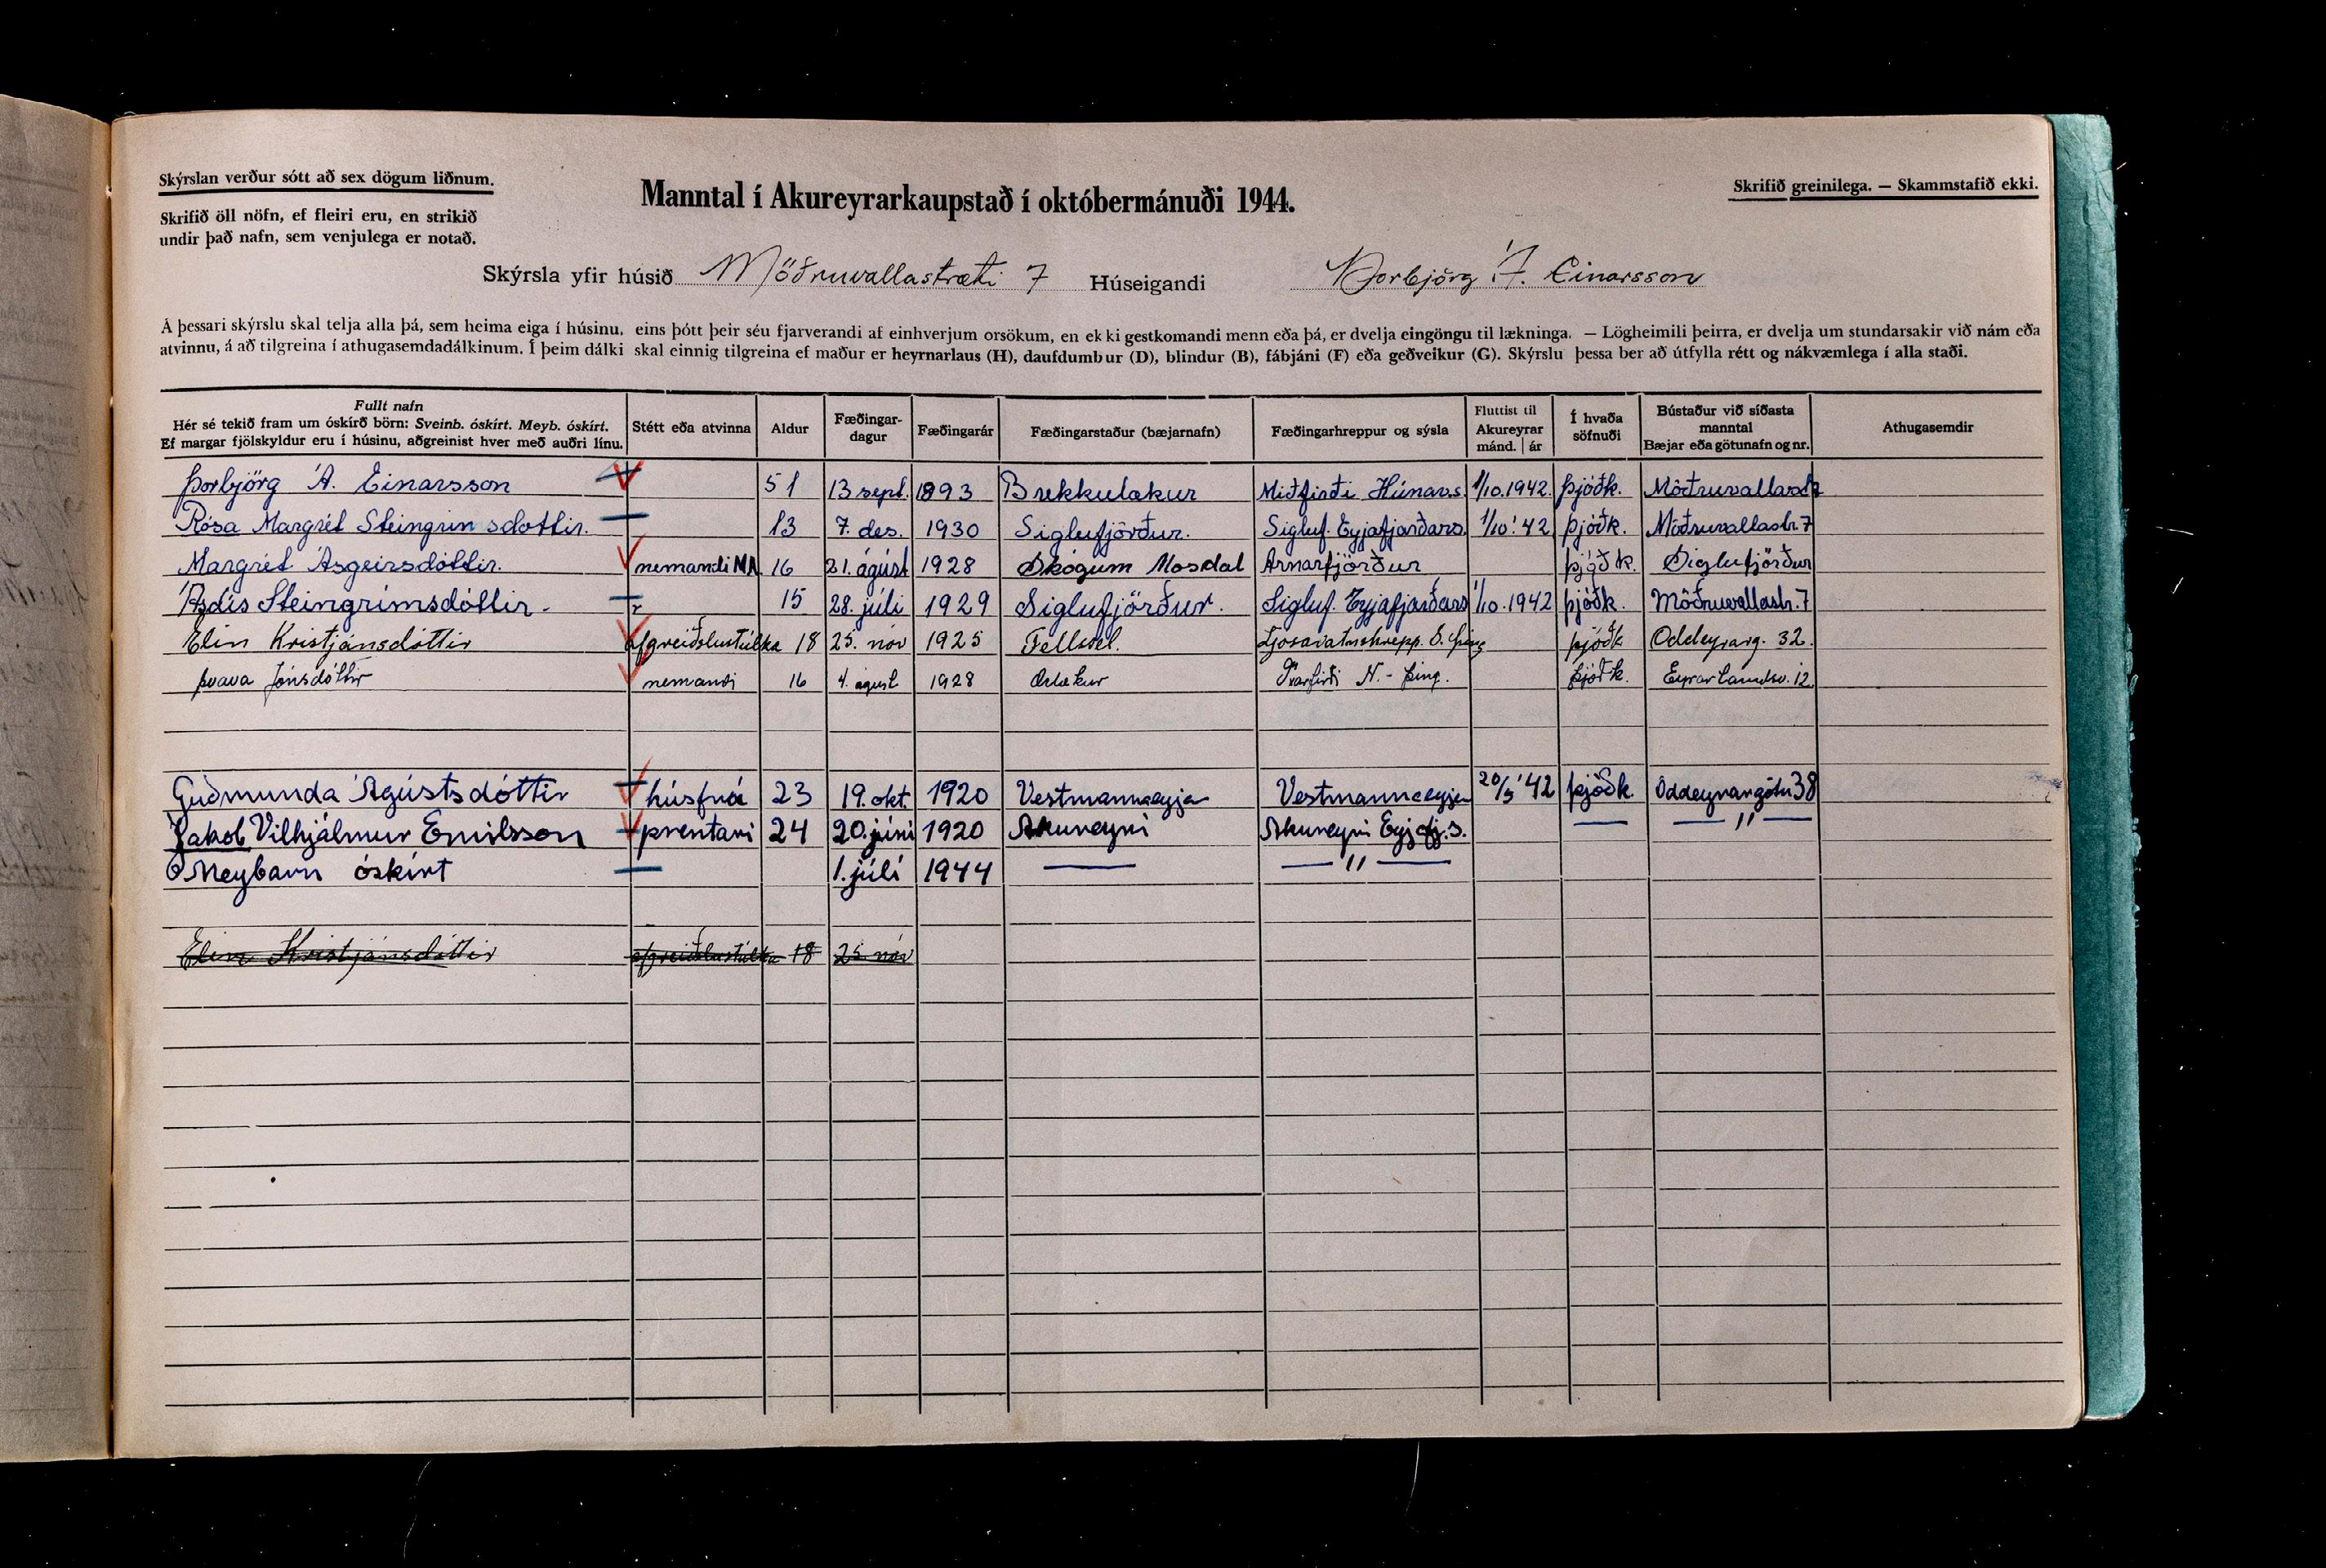 Skýrslan verður sótt að sex dögum liðnum.
Skrifið öll nöfn, ef fleiri eru, en strikið
undir það nafn, sem venjulega er notað.
Manntal í Akureyrarkaupstað í októbermánuði 1944.
Skrifið greinilega. — Skammstafið ekki.
Skýrsla yfir húsið Möðruvallastræti 7 Húseigandi Þorbjörg Á. Einarsson
Á þessari skýrslu skal telja alla þá, sem heima eiga í húsinu, eins þótt þeir séu fjarverandi af einhverjum orsökum, en ekki gestkomandi menn eða þá, er dvelja eingöngu til lækninga. — Lögheimili þeirra, er dvelja um stundarsakir við nám eða
atvinnu, á að tilgreina í athugasemdadálkinum. Í þeim dálki skal einnig tilgreina ef maður er heyrnarlaus (H), daufdumbur (D), blindur (B), fábjáni (F) eða geðveikur (G). Skýrslu þessa ber að útfylla rétt og nákvæmlega í alla staði.
Fullt nafn
Hér sé tekið fram um óskírð börn: Sveinb. óskírt. Meyb. óskírt.
Ef margar fjölskyldur eru í húsinu, aðgreinist hver með auðri línu.
Stétt eða atvinna
Aldur
Fæðingar-
dagur
Fæðingarár
Fæðingarstaður (bæjarnafn)
Fæðingarhreppur og sýsla
Fluttist til
Akureyrar
mánd. | ár
Í hvaða
söfnuði
Bústaður við síðasta
manntal
Bæjar eða götunafn og nr.
Athugasemdir
Þorbjörg Á. Einarsson 51 13 sept. 1893 Brekkulækur Miðfirði Húnavs. 1/10.1942. þjóðk. Möðruvallastr 7
Rósa Margrét Steingrímsdóttir. 13 7. des. 1930 Siglufjörður. Sigluf. Eyjafjarðars. 1/10.'42 þjóðk. Möðruvallastr. 7
Margrét Ásgeirsdóttir. nemandi MA 16 21. ágúst 1928 Skógum Mosdal Arnarfjörður þjóðk. Siglufjörður
Ásdís Steingrímsdóttir - 15 28. júlí 1929 Siglufjörður. Sigluf. Eyjafjarðars 1/10.1942 þjóðk. Möðruvallastr. 7
Elín Kristjánsdóttir afgreiðslustúlka 18 25. nóv 1925 Fellssel. Ljósavatnshrepp. S. Þing þjóðk Oddeyrarg. 32.
Svava Jónsdóttir nemandi 16 4. ágúst 1928 N.- Þing. þjóðk. Eyrarlandsv. 12.
Guðmunda Ágústsdóttir húsfrú 23 19. okt. 1920 Vestmannaeyja Vestmannaeyjar 20/5 '42 þjóðk. Oddeyrargötu 38
Jakob Vilhjálmur Emilsson prentari 24 20. júní 1920 Akureyri Akureyri Eyjafj.s. — — " —
Meybarn óskírt 1. júlí 1944 — — " —
Elín Kristjánsdóttir afgreiðslustúlka 18 25 nóv